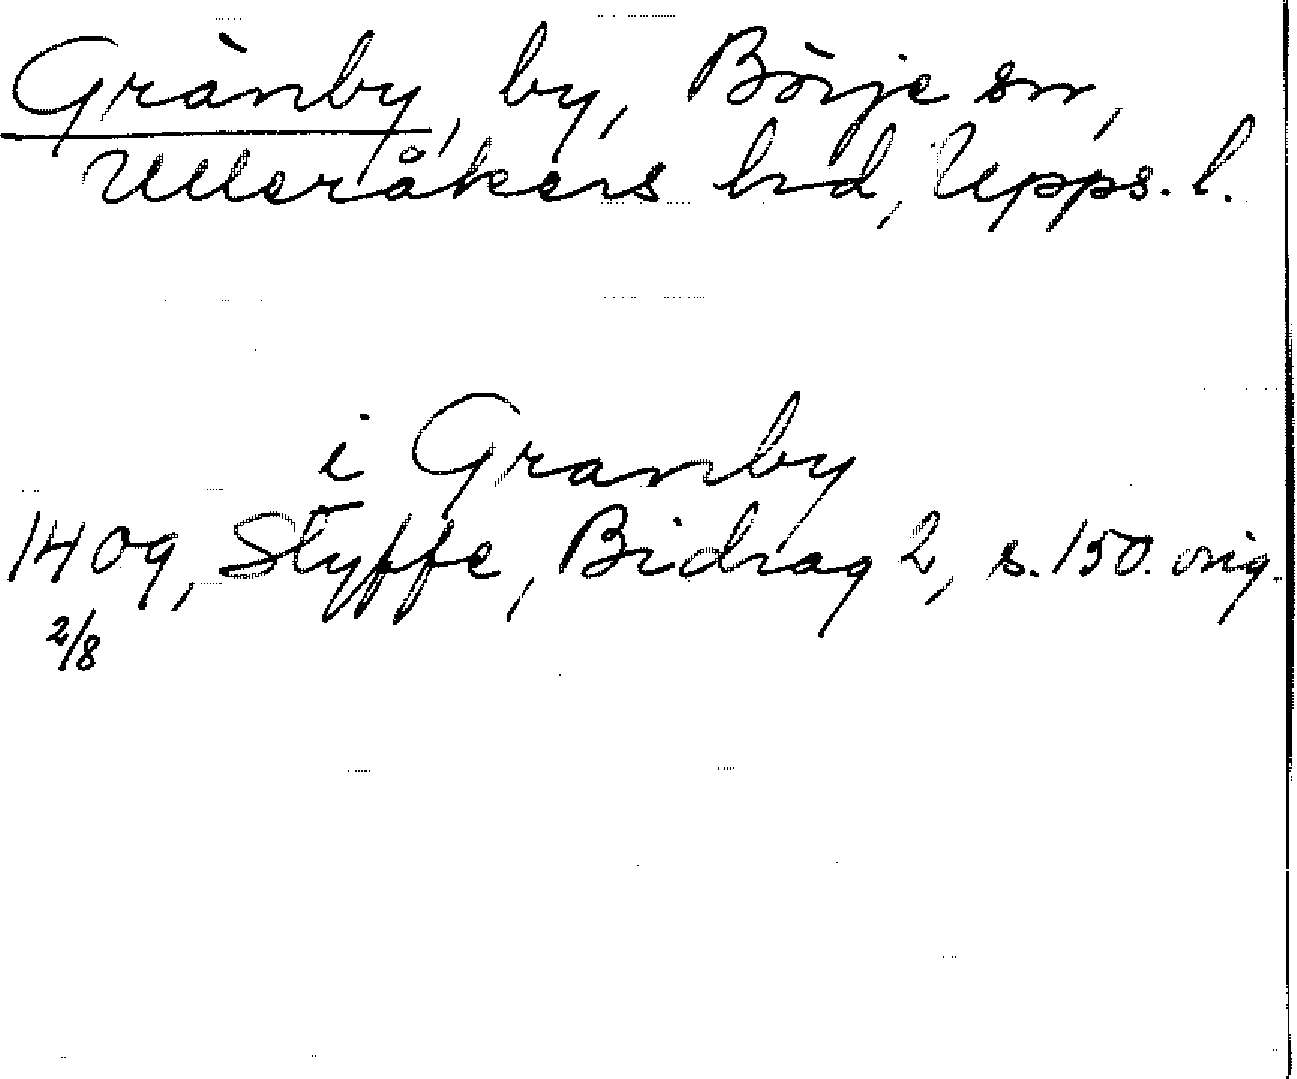 Gränby, by, Börje sn,
Ulleråkers hd, Upps. l.
i Granby
1409, Styffe, Bidrag 2, s. 150. orig.
2/8